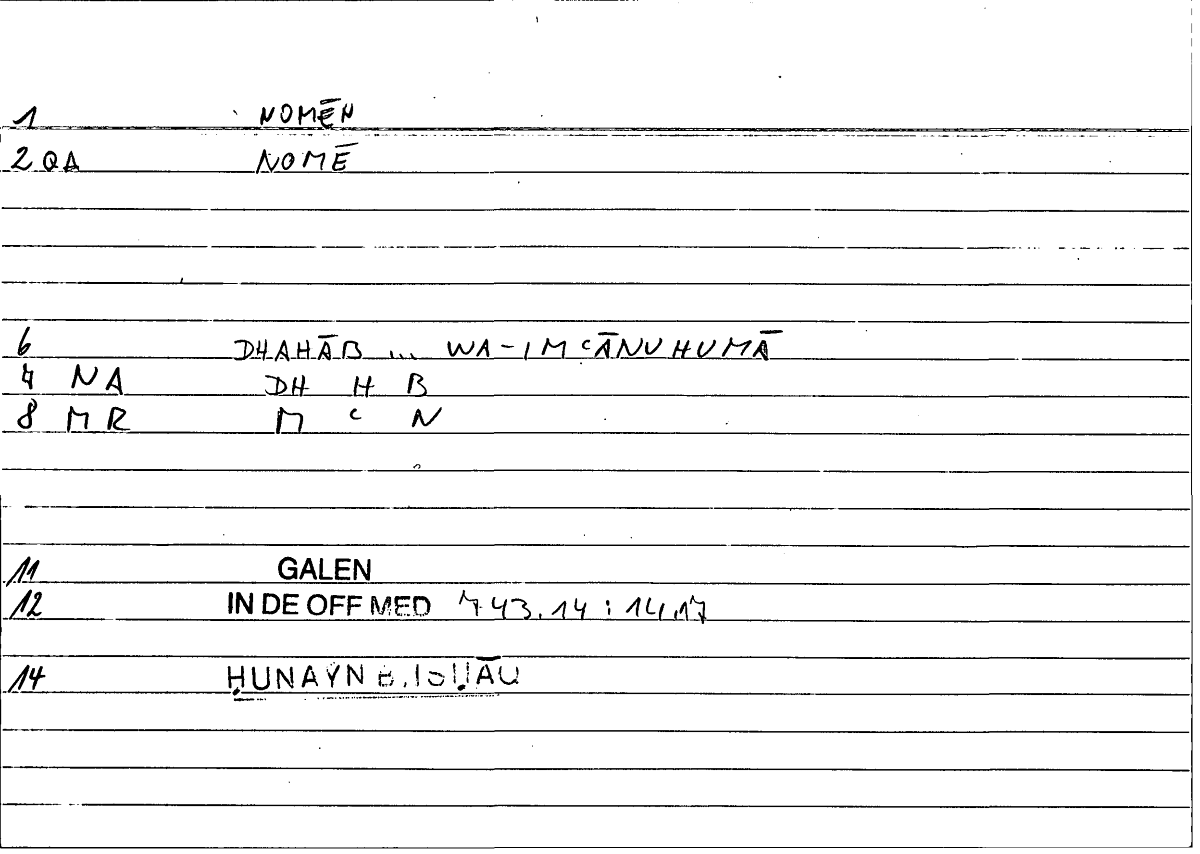 1 NOMĒN
2 QA NOMĒ
6 DHAHĀB ... WA-IMʿĀNUHUMĀ
7 NA DH H B
8 MR M ʿ N
11 GALEN
12 IN DE OFF MED 743.14 : 14,17
14 ḤUNAYN B. ISḤĀQ